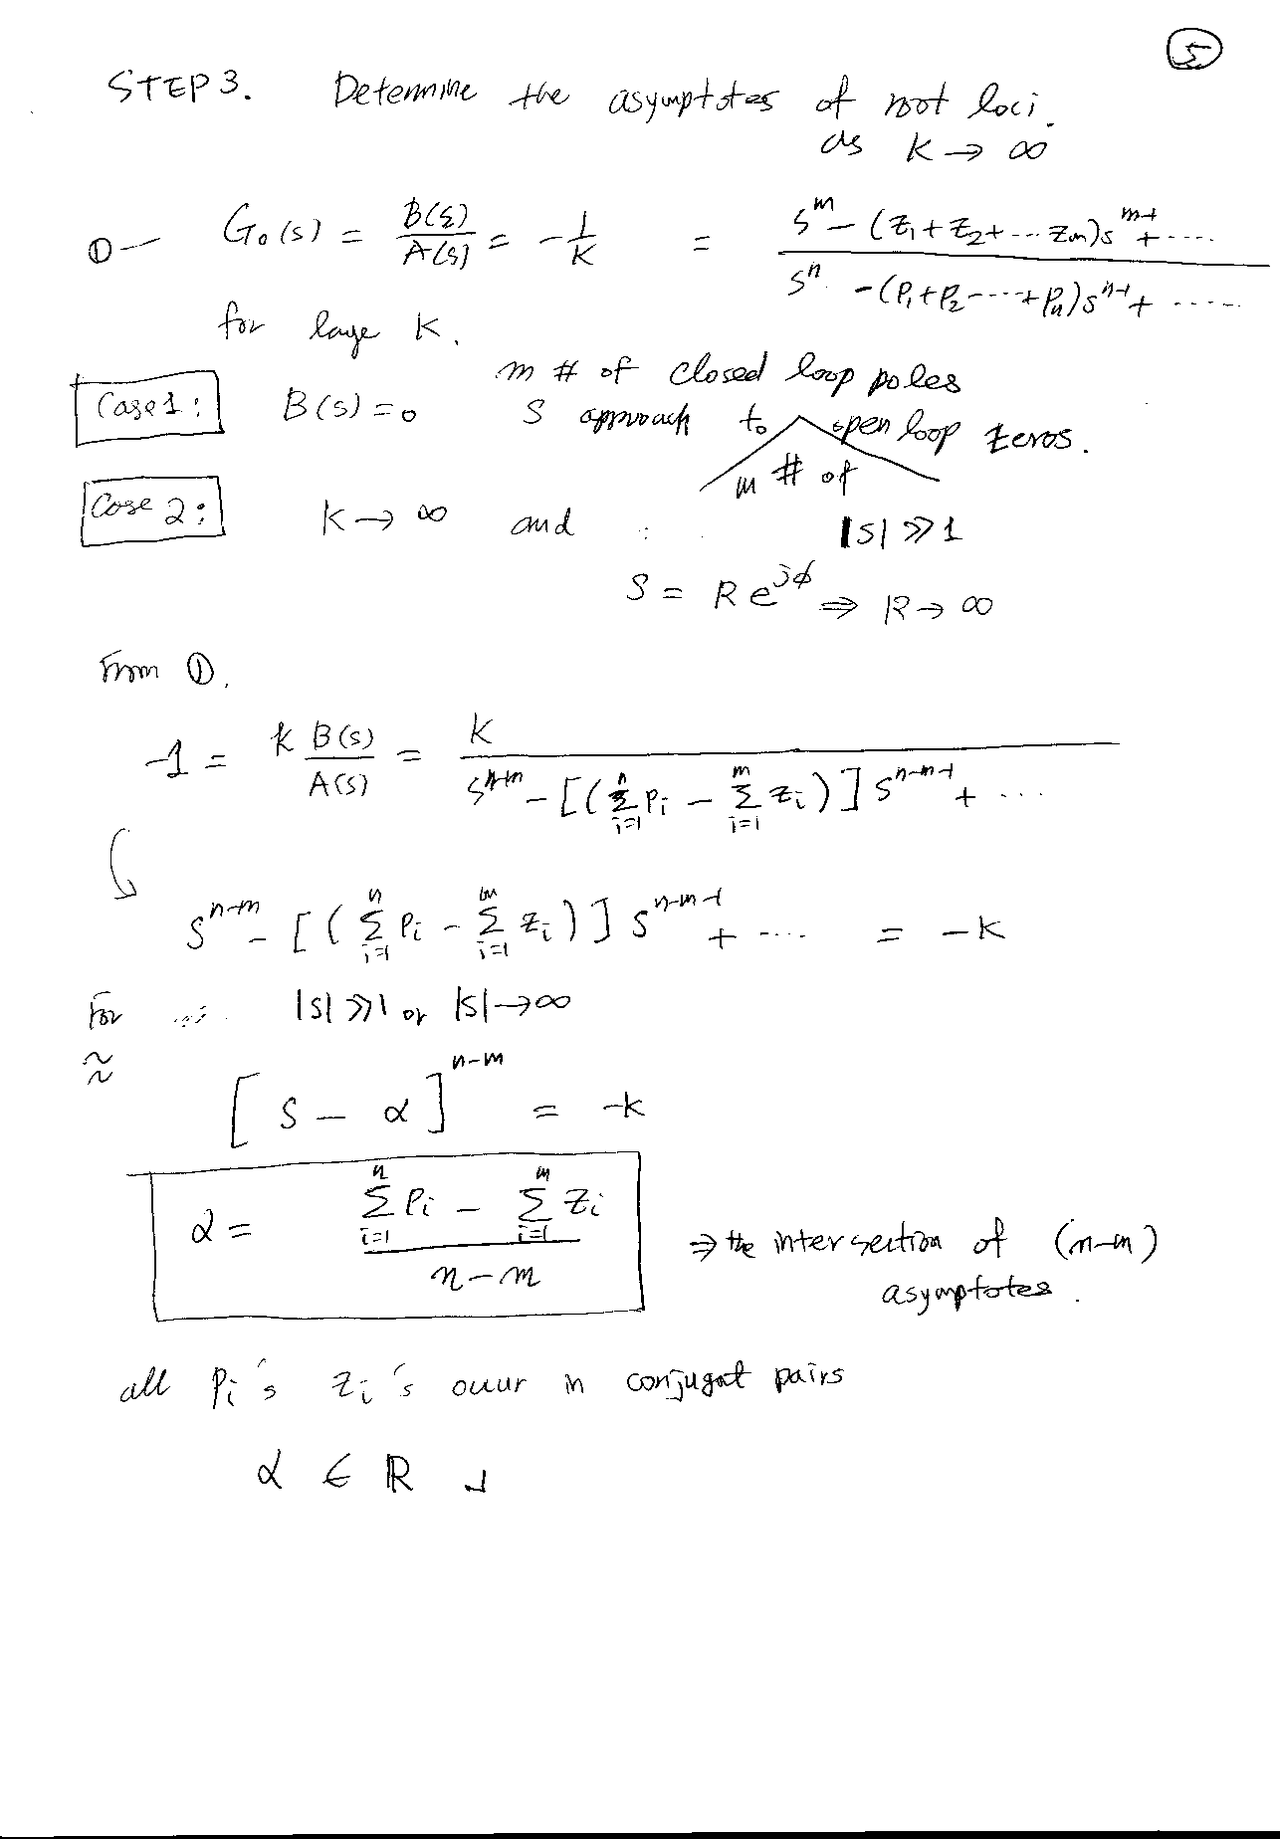 ⑤
STEP 3. Determine the asymptotes of root loci.
as K → ∞
①— G₀(s) = B(s)/A(s) = -1/K = (s^m - (z₁+z₂+...zm)s^(m-1) + ....)/(s^n - (p₁+p₂----+pn)s^(n-1) + .....)
for large K.
m # of closed loop poles
Case1: B(s)=0 S approach to open loop zeros.
m # of
Case 2: K → ∞ and |S| ≫ 1
S = R e^(jφ) ⇒ R → ∞
From ①.
-1 = k B(s)/A(s) = K/(s^(n-m) - [(Σ_{i=1}^{n} Pi - Σ_{i=1}^{m} Zi)] s^(n-m-1) + ...)
s^(n-m) - [(Σ_{i=1}^{n} Pi - Σ_{i=1}^{m} Zi)] s^(n-m-1) + .... = -K
For |S| ≫ 1 or |S| → ∞
≈
[S - α]^(n-m) = -k
α = (Σ_{i=1}^{n} Pi - Σ_{i=1}^{m} Zi)/(n-m) ⇒ the intersection of (n-m)
asymptotes.
all Pi's Zi's occur in conjugat pairs
α ∈ ℝ